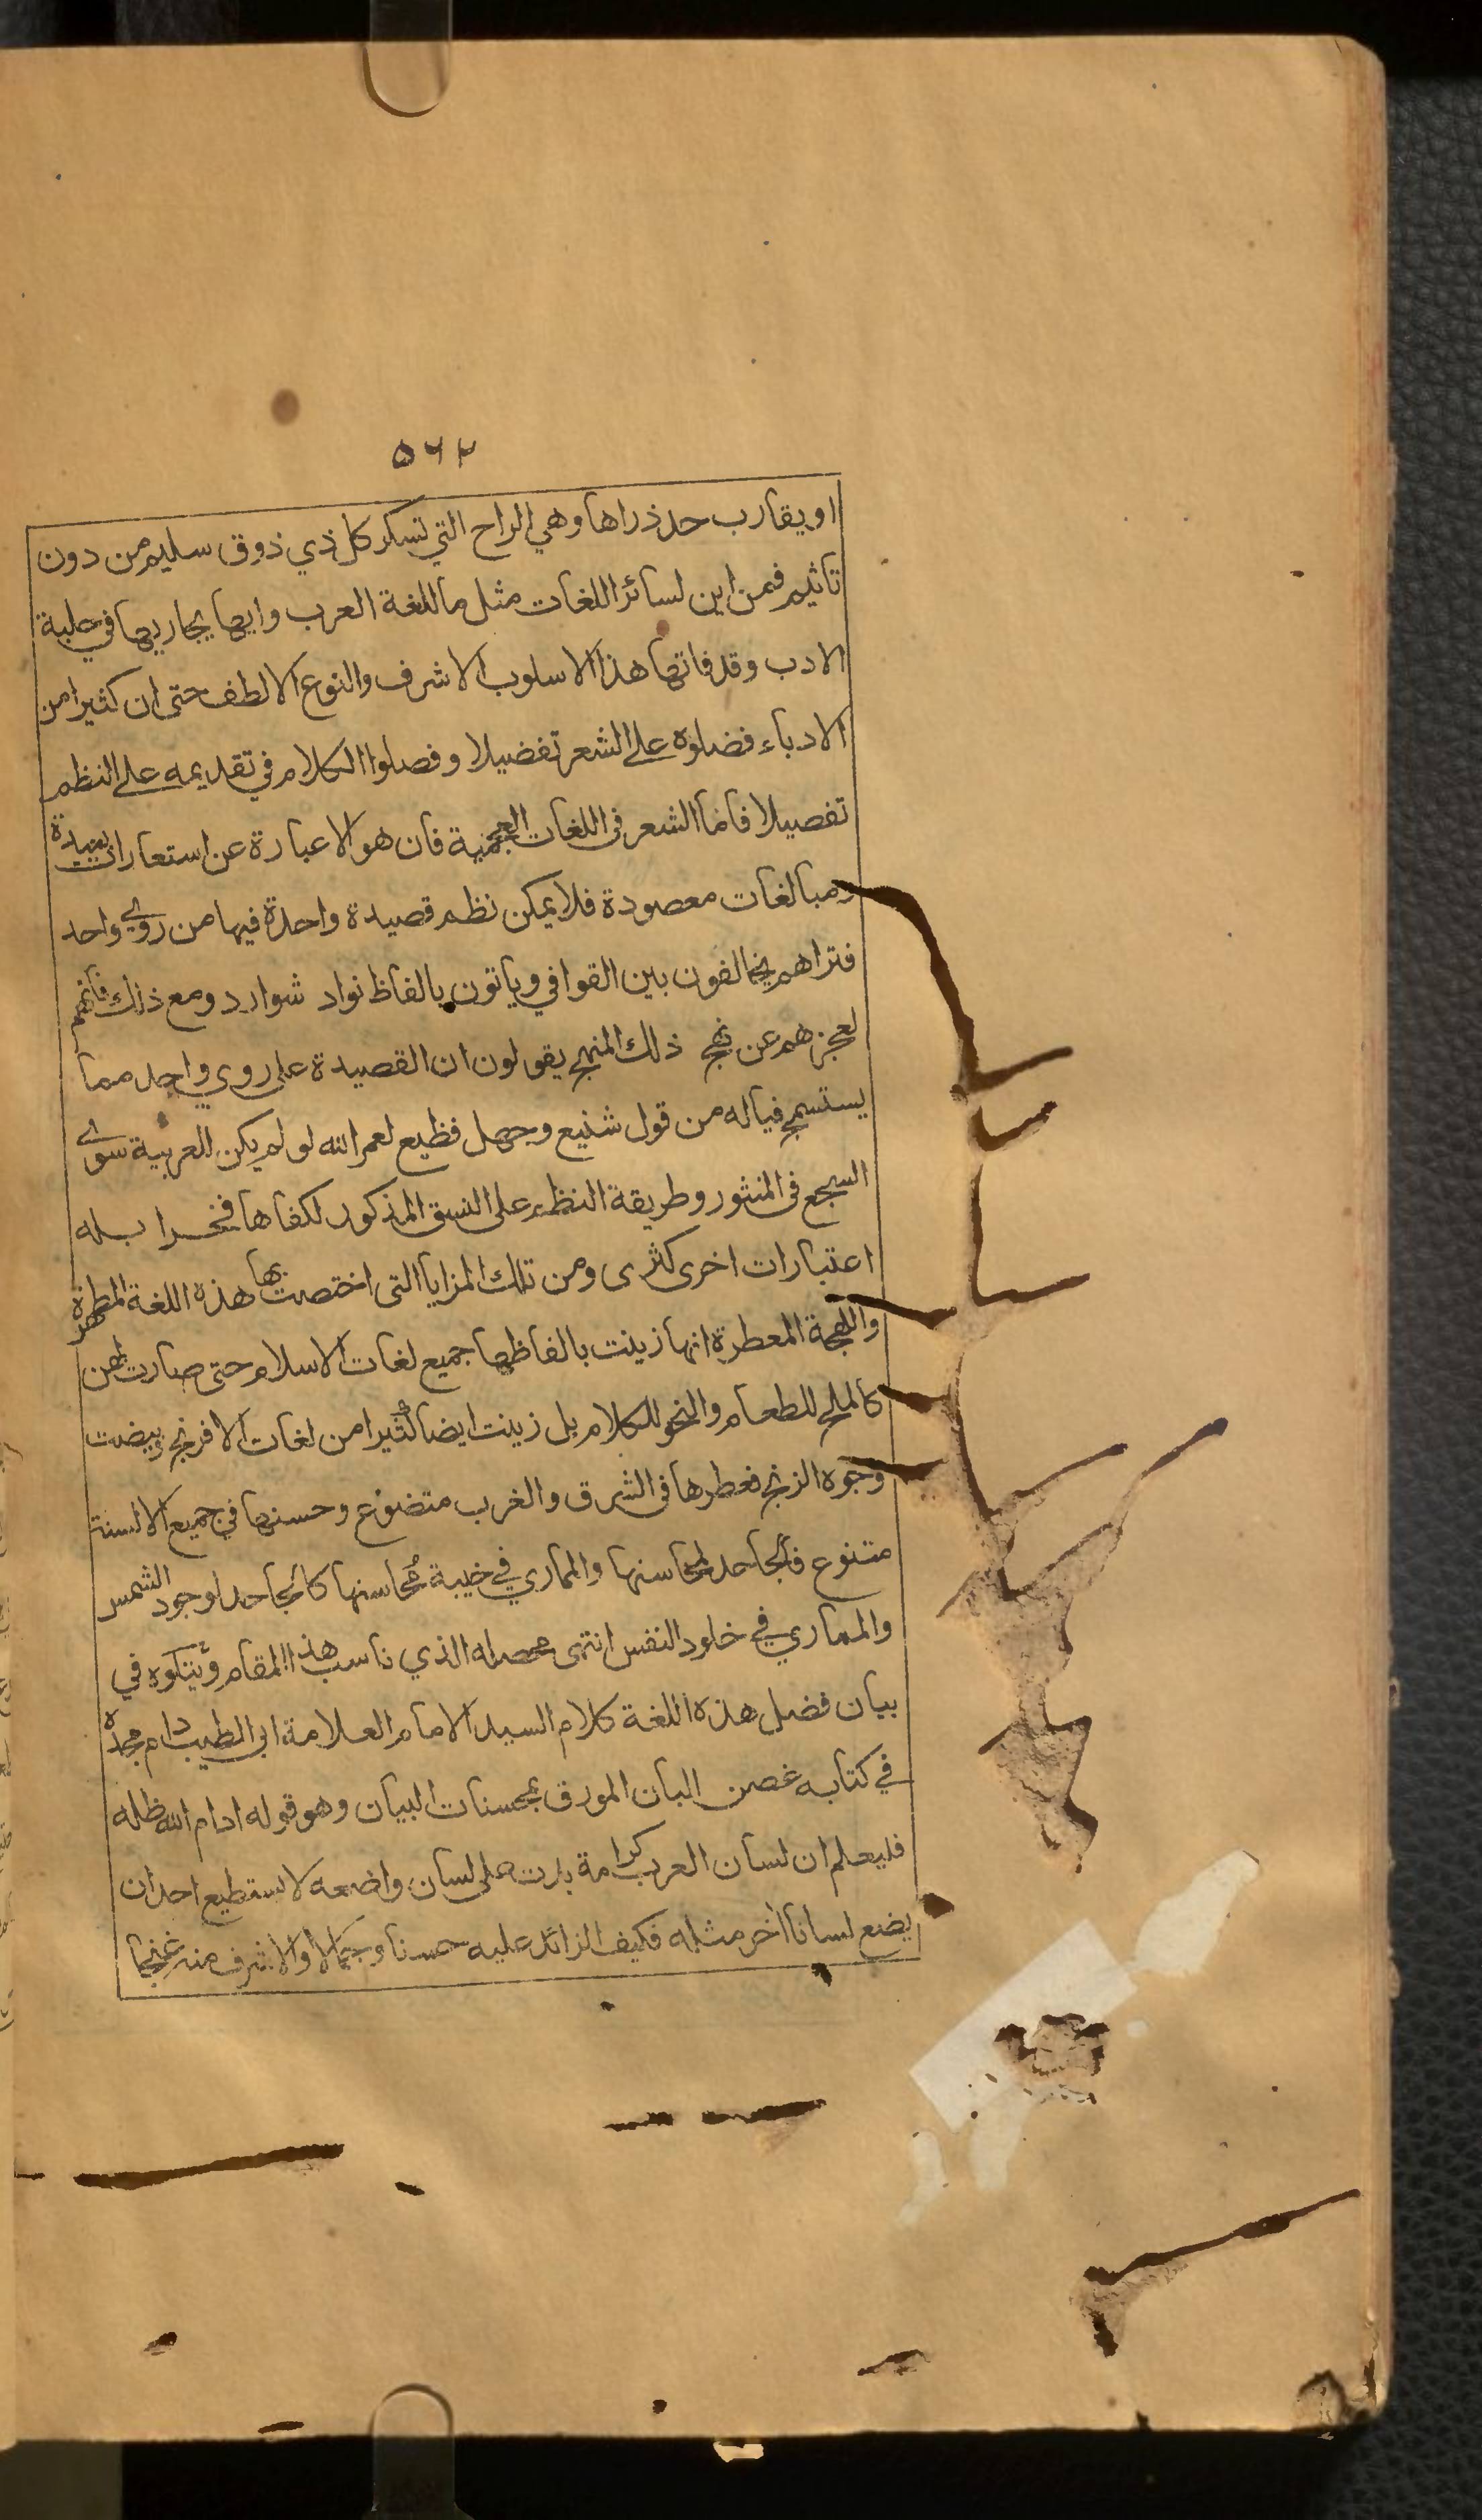 ٥٦٢
او يقارب حد ذراها وهي الراح التي تسكر كل ذي ذوق سليم من دون
تاثيم فمن اين لسائر اللغات مثل ما للغة العرب وايها يجاريها في حلبة
الادب وقد فاتها هذا الاسلوب الاشرف والنوع الالطف حتى ان كثيرا من
الادباء فضلوه على الشعر تفضيلا وفصلوا الكلام في تقديمه على النظم
تفصيلا فاما الشعر في اللغات العجمية فان هو الا عبارة عن استعارات
ومبالغات معصودة فلا يمكن نظم قصيدة واحدة فيها من روي واحد
فتراهم يخالفون بين القوافي وياتون بالفاظ نواد شوارد ومع ذلك فانهم
لعجزهم عن نهج ذلك المنهج يقولون ان القصيدة على روي واحد مما
يستسمج فياله من قول شنيع وجهل فظيع لعمر الله لو لم يكن للعربية سوى
السجع في المنثور وطريقة النظم على النسق المذكور لكفاها فخرا بله
اعتبارات اخرى كثرى ومن تلك المزايا التي اختصت بها هذه اللغة المطهرة
واللهجة المعطرة انها زينت بالفاظها جميع لغات الاسلام حتى صارت لهن
كالملح للطعام والنحو للكلام بل زينت ايضا كثيرا من لغات الافرنج وبيضت
وجوه الزنج فعطرها في الشرق والغرب متضوع وحسنها في جميع الالسنة
متنوع فالجاحد لمحاسنها والمماري في خيبة محاسنها كالجاحد لوجود الشمس
والمماري في خلود النفس انتهى محصله الذي ناسب هذا المقام ويتلوه في
بيان فضل هذه اللغة كلام السيد الامام العلامة ابي الطيب دام مجده
في كتابه غصن البان المورق بمحسنات البيان وهو قوله ادام الله ظله
فليعلم ان لسان العرب كرامة بدت على لسان واضعه لا يستطيع احد ان
يضع لسانا اٰخر مثله فكيف الزائد عليه حسنا وجمالا والاشرف منه غنجا